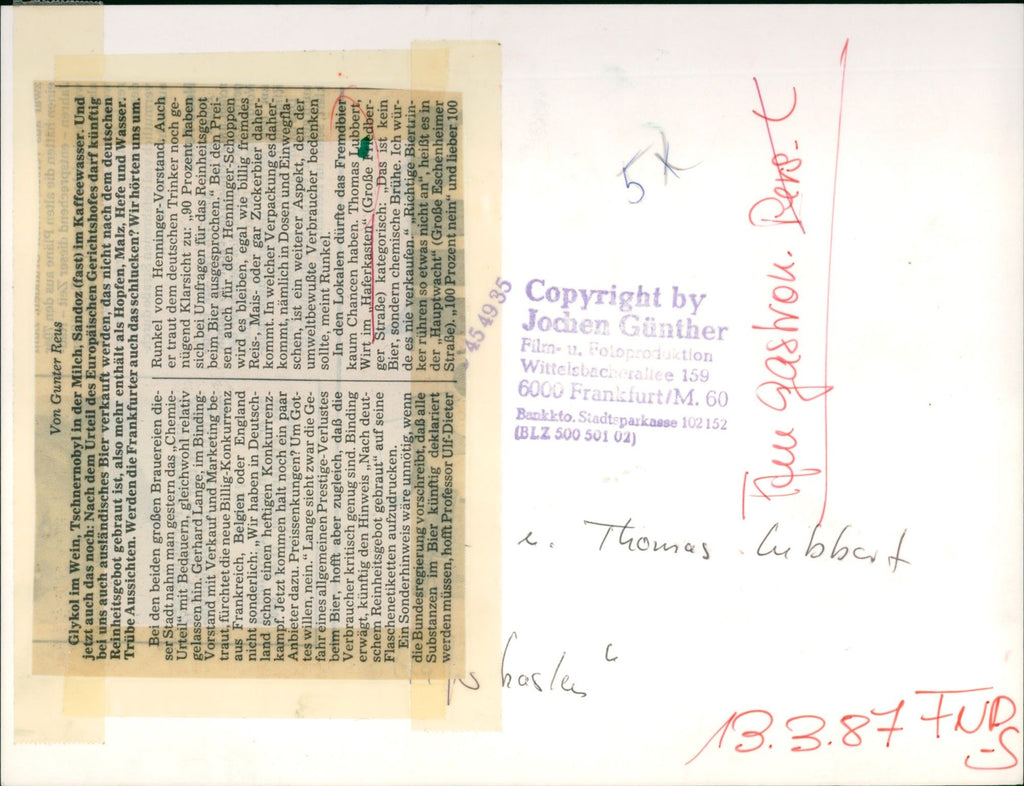 Von Gunter Reus
Glykol im Wein, Tschernobyl in der Milch, Sandoz (fast) im Kaffeewasser. Und
jetzt auch das noch: Nach dem Urteil des Europäischen Gerichtshofes darf künftig
bei uns auch ausländisches Bier verkauft werden, das nicht nach dem deutschen
Reinheitsgebot gebraut ist, also mehr enthält als Hopfen, Malz, Hefe und Wasser.
Trübe Aussichten. Werden die Frankfurter auch das schlucken? Wir hörten uns um.
Bei den beiden großen Brauereien die-
ser Stadt nahm man gestern das „Chemie-
Urteil“ mit Bedauern, gleichwohl relativ
gelassen hin. Gerhard Lange, im Binding-
Vorstand mit Verkauf und Marketing be-
traut, fürchtet die neue Billig-Konkurrenz
aus Frankreich, Belgien oder England
nicht sonderlich: „Wir haben in Deutsch-
land schon einen heftigen Konkurrenz-
kampf. Jetzt kommen halt noch ein paar
Anbieter dazu. Preissenkungen? Um Got-
tes willen, nein.“ Lange sieht zwar die Ge-
fahr eines allgemeinen Prestige-Verlustes
beim Bier, hofft aber zugleich, daß die
Verbraucher kritisch genug sind. Binding
erwägt, künftig den Hinweis „Nach deut-
schem Reinheitsgebot gebraut“ auf seine
Flaschenetiketten aufzudrucken.
Ein Sonderhinweis wäre unnötig, wenn
die Bundesregierung vorschreibt, daß alle
Substanzen im Bier künftig deklariert
werden müssen, hofft Professor Ulf-Dieter
Runkel vom Henninger-Vorstand. Auch
er traut dem deutschen Trinker noch ge-
nügend Klarsicht zu: „90 Prozent haben
sich bei Umfragen für das Reinheitsgebot
beim Bier ausgesprochen.“ Bei den Prei-
sen auch für den Henninger-Schoppen
wird es bleiben, egal wie billig fremdes
Reis-, Mais- oder gar Zuckerbier daher-
kommt. In welcher Verpackung es daher-
kommt, nämlich in Dosen und Einwegfla-
schen, ist ein weiterer Aspekt, den der
umweltbewußte Verbraucher bedenken
sollte, meint Runkel.
In den Lokalen dürfte das Fremdbier
kaum Chancen haben. Thomas Lubbert,
Wirt im „Haferkasten“ (Große Friedber-
ger Straße) kategorisch: „Das ist kein
Bier, sondern chemische Brühe. Ich wür-
de es nie verkaufen.“ „Richtige Biertrin-
ker rühren so etwas nicht an“, heißt es in
der „Hauptwacht“ (Große Eschenheimer
Straße). „100 Prozent nein“ und lieber 100
5x
45 49 35
Copyright by
Jochen Günther
Film- u. Fotoproduktion
Wittelsbacherallee 159
6000 Frankfurt/M. 60
Bankkto. Stadtsparkasse 102 152
(BLZ 500 501 02)
Gastron. Pers-t
u. Thomas Lubbert
kasten“
13.3.87 FND
-S